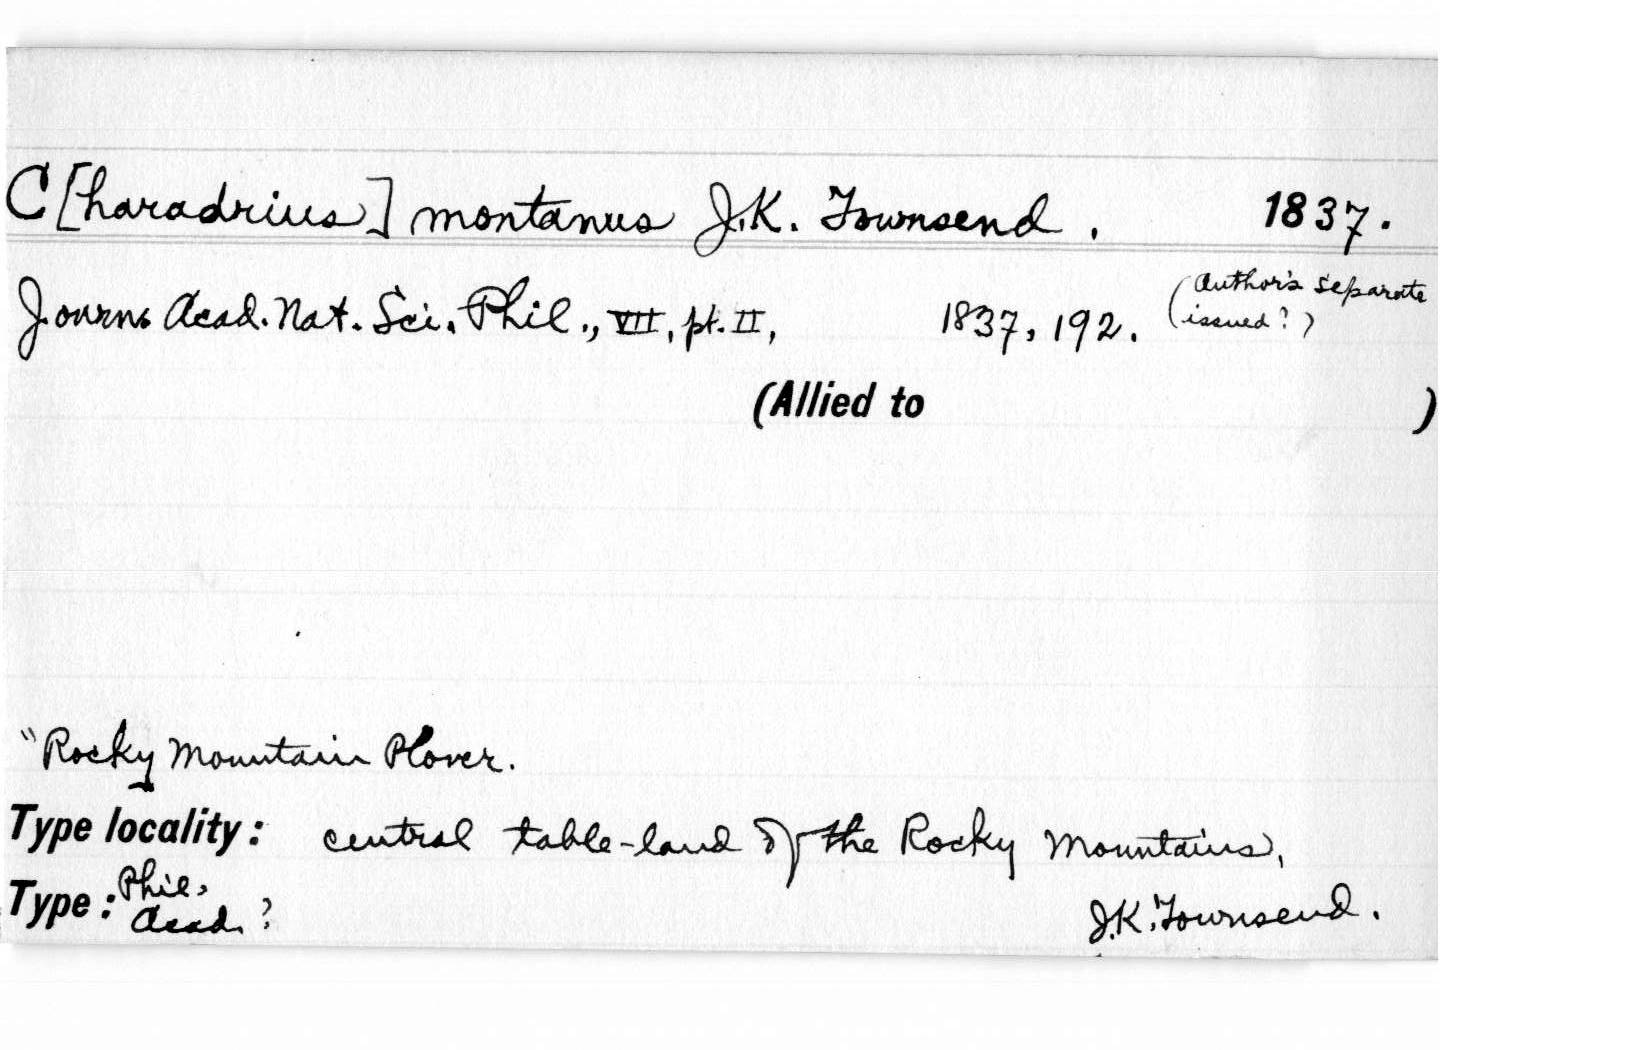 C[haradrius] montanus J.K. Townsend. 1837.
Journ. Acad. Nat. Sci. Phil., VII, pt. II, 1837, 192. (Author's separate
issued?)
(Allied to )
"Rocky Mountain Plover.
Type locality: central table-land of the Rocky Mountains,
Type: Phil.
Acad. ? J.K. Townsend.